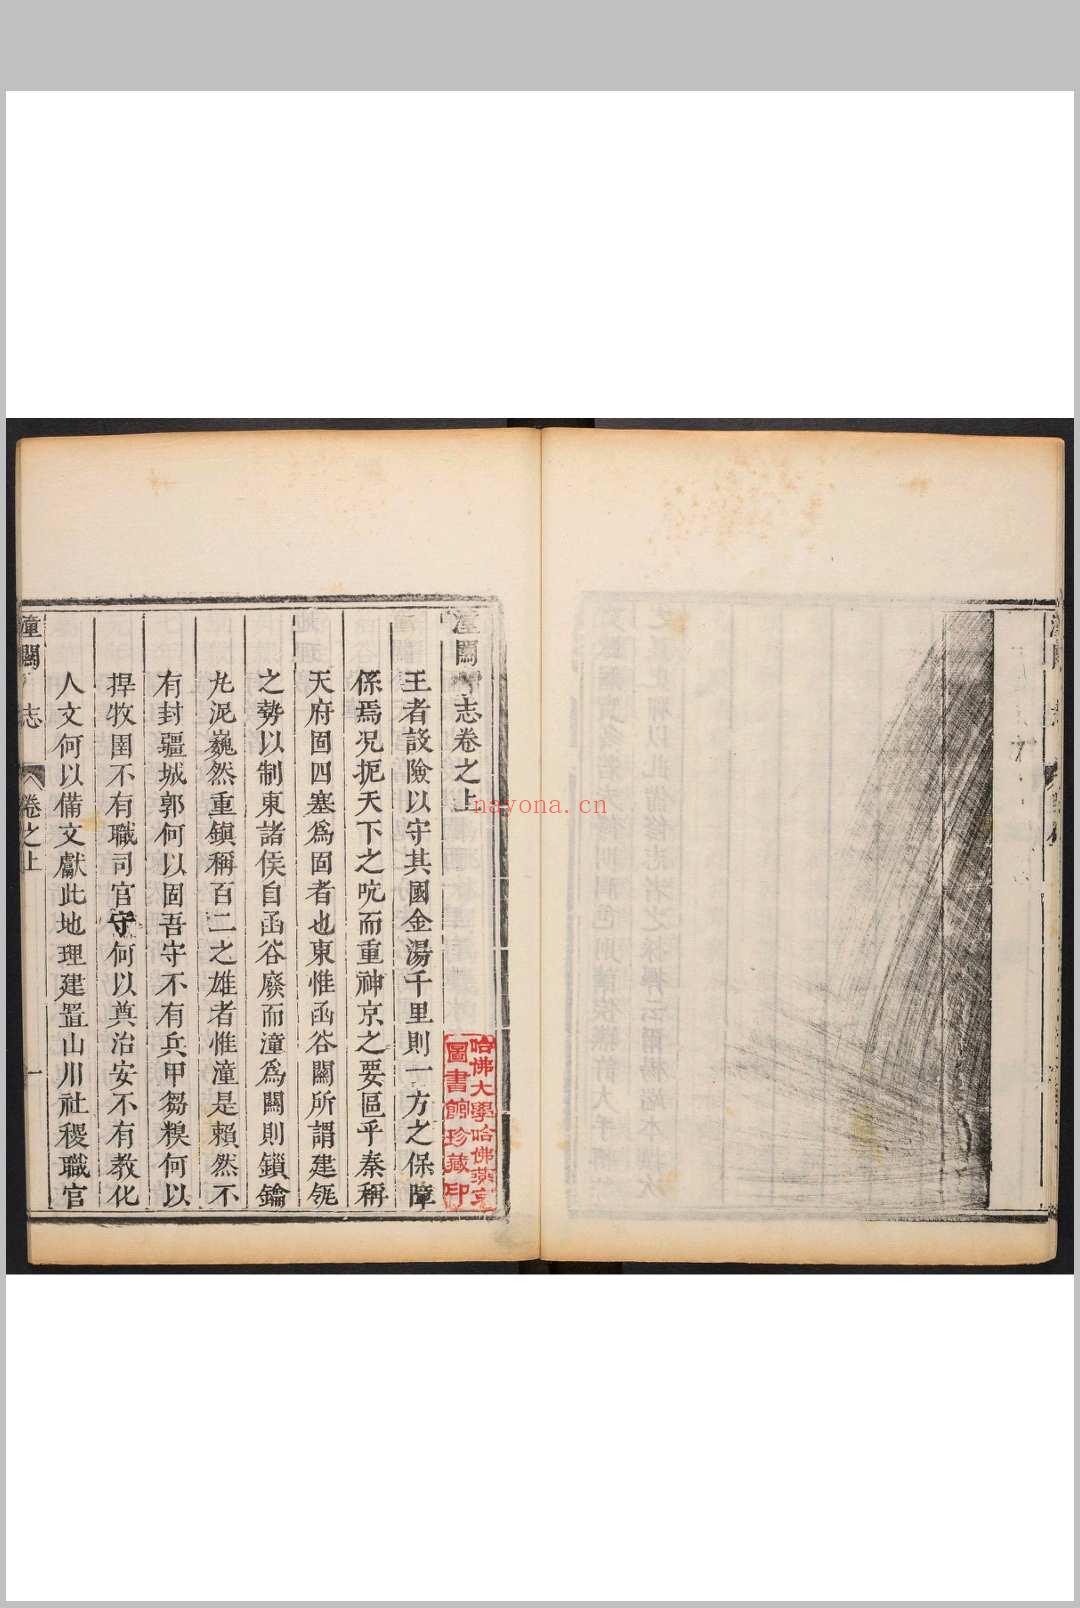 潼關志卷之上
王者設險以守其國金湯千里則一方之保障
係焉况扼天下之吭而重神京之要區乎秦稱
天府固四塞爲固者也東惟函谷關所謂建瓴
之勢以制東諸侯自函谷廢而潼爲關則鎖鑰
九泥巍然重鎮稱百二之雄者惟潼是賴然不
有封疆城郭何以固吾守不有兵甲芻糗何以
捍牧圉不有職司官守何以奠治安不有教化
人文何以備文獻此地理建置山川社稷職官
潼關志 卷之上 一
哈佛大學哈佛燕京
圖書館珍藏印
nayona.cn